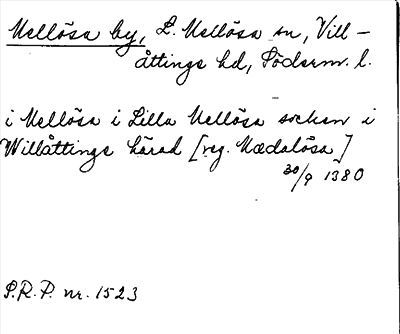 Mellösa by, L. Mellösa sn, Vill-
åttinge hd, Söderm. l.
i Mellösa i Lilla Mellösa socken i
Willåttinge härad [reg. Mædalösa]
30/9 1380
S.R.P. nr. 1523